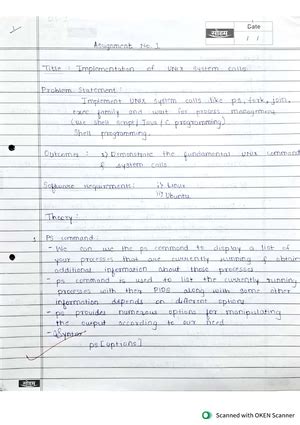 सोहम
Date
/ /
Assignment No. 1
Title : Implementation of Unix system calls.
Problem Statement :
Implement Unix system calls like ps, fork, join,
exec family and wait for process management
(use shell script / Java / C programming)
Shell programming.
Outcomes : 1) Demonstrate the fundamental Unix command
& system calls
Software requirements : i) Linux
ii) Ubuntu
Theory :
1. PS command
- We can use the ps command to display a list of
your processes that are currently running & obtain
additional information about those processes
- ps command is used to list the currently running
processes with their PIDS along with some other
information depends on different options
- ps provides numerous options for manipulating
the output according to our need
- Syntax
ps [options]
सोहम
Scanned with OKEN Scanner